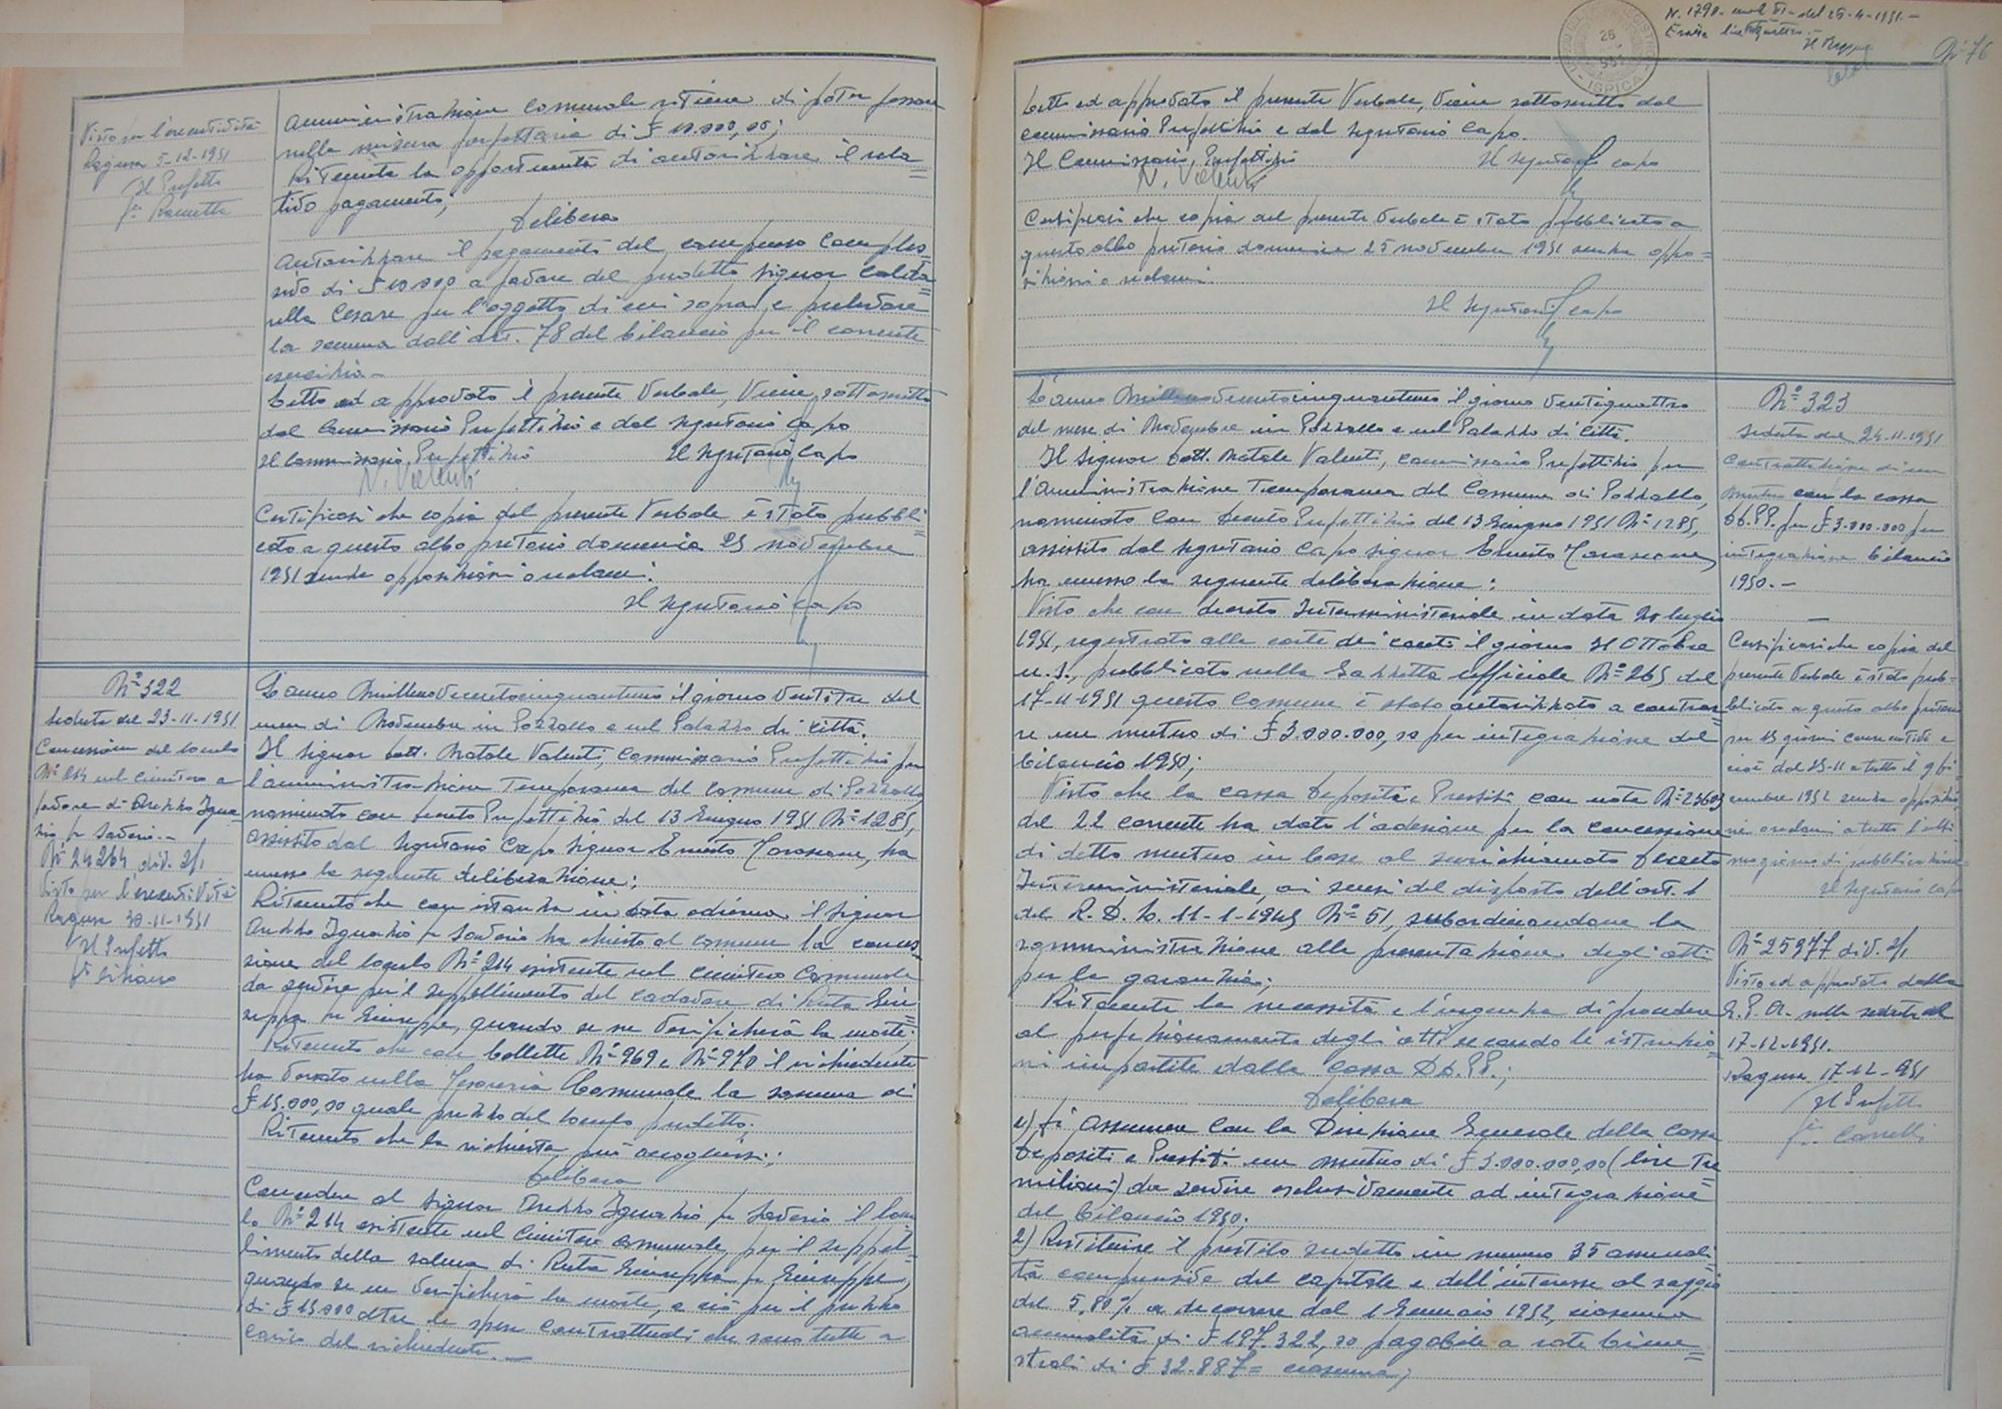 Visto per l'esecutività
Ragusa 5-12-1951
Il Prefetto
Amministrazione Comunale ritiene di poter fissare
nella misura forfettaria di £ 10.000,00;
Ritenuta la opportunità di autorizzare il rela=
tivo pagamento;
Delibera
Autorizzare il pagamento del compenso comples=
sivo di £ 10.000 a favore del predetto signor
Cesare per l'oggetto di cui sopra, e prelevare
la somma dall'art. 78 del bilancio per il corrente
esercizio.-
Letto ed approvato il presente Verbale, Viene sottoscritto
dal Commissario Prefettizio e dal Segretario Capo
Il Commissario Prefettizio Il Segretario Capo
N. Valenti
Certificasi che copia del presente Verbale è stato pubbli
cato a questo albo pretorio domenica 25 novembre
1951 senza opposizioni o reclami.
Il Segretario Capo
N° 322
Seduta del 23-11-1951
Concessione del loculo
N° 214 nel cimitero a
favore di Igna
zio fu Saverio.-
N° 24264 div. 2/1
Visto per l'esecutività
Ragusa 30-11-1951
Il Prefetto
L'anno Millenovecentocinquantuno il giorno Ventitre del
mese di Novembre in Pozzallo e nel Palazzo di Città.
Il Signor Dott. Natale Valenti, Commissario Prefettizio per
l'amministrazione Temporanea del Comune di Pozzallo,
nominato con Decreto Prefettizio del 13 Giugno 1951 N° 1285,
assistito dal Segretario Capo Signor Ernesto , ha
emesso la seguente deliberazione:
Ritenuto che con istanza in data odierna il Signor
Ignazio fu Saverio ha chiesto al comune la conces
sione del loculo N° 214 esistente nel cimitero Comunale
da servire per il seppellimento del cadavere di Ruta Giu
seppa fu Giuseppe, quando se ne verificherà la morte;
Ritenuto che con bollette N° 969 e N° 970 il richiedente
ha versato nella Tesoreria Comunale la somma di
£ 15.000,00 quale prezzo del loculo predetto;
Ritenuto che la richiesta può accogliersi;
Delibera
Concedere al Signor Ignazio fu Saverio il locu
lo N° 214 esistente nel Cimitero Comunale, per il seppel=
limento della salma di Ruta Giuseppa fu Giuseppe,
quando se ne verificherà la morte, e ciò per il prezzo
di £ 15.000 oltre le spese contrattuali che sono tutte a
carico del richiedente.-
N. 1790 - mod II - del 26-4-1951.-
ISPICA
N° 76
Letto ed approvato il presente Verbale, Viene sottoscritto dal
Commissario Prefettizio e dal Segretario Capo.
Il Commissario Prefettizio Il Segretario Capo
N. Valenti
Certificasi che copia del presente Verbale è stato pubblicato a
questo albo pretorio domenica 25 novembre 1951 senza oppo=
sizioni o reclami.
Il Segretario Capo
L'anno Millenovecentocinquantuno il giorno Ventiquattro
del mese di Novembre in Pozzallo e nel Palazzo di Città.
Il Signor Dott. Natale Valenti, Commissario Prefettizio per
l'Amministrazione Temporanea del Comune di Pozzallo,
nominato con Decreto Prefettizio del 13 Giugno 1951 N° 1285,
assistito dal Segretario Capo Signor Ernesto
ha emesso la seguente deliberazione:
Visto che con decreto Interministeriale in data 20 luglio
1951, registrato alla corte dei conti il giorno 31 Ottobre
u.s., pubblicato nella Gazzetta ufficiale N° 265 del
17-11-1951 questo Comune è stato autorizzato a contrar=
re un mutuo di £ 3.000.000,00 per integrazione del
bilancio 1950;
Visto che la cassa Depositi e Prestiti con nota
del 22 corrente ha dato l'adesione per la concessione
di detto mutuo in base al surrichiamato Decreto
Interministeriale, ai sensi del disposto dell'art. 1
del R.D.L. 11-1-1945 N° 51, subordinandone la
somministrazione alla presentazione degli atti
per la garanzia;
Ritenuta la necessità e l'urgenza di procedere
al perfezionamento degli atti secondo le istruzio=
ni impartite dalla Cassa DD.PP.;
Delibera
1) Di assumere con la Direzione Generale della Cassa
Depositi e Prestiti un mutuo di £ 3.000.000,00 (lire Tre
milioni) da servire esclusivamente ad integrazione
del bilancio 1950;
2) Restituire il prestito suddetto in numero 35 annuali
tà comprensive del capitale e dell'interesse al saggio
del 5,80% a decorrere dal 1 Gennaio 1952, ciascuna
annualità di £ 197.322,00 pagabile a rate bime=
strali di £ 32.887= ciascuna;
N° 323
Seduta del 24-11-1951
Contrattazione di un
mutuo con la cassa
DD.PP. per £ 3.000.000 per
integrazione bilancio
1950.-
Certificasi che copia del
presente Verbale è stato pub=
blicato a questo albo pretorio
per 15 giorni consecutivi e
cioè dal 25-11 a tutto il 9 di
cembre 1951 senza opposizio
ni o reclami a tutto l'ulti
mo giorno di pubblicazione=
Il Segretario Capo
N° 25977 div. 2/1
Visto ed approvato dalla
G.P.A. nella seduta del
17-12-1951.
Ragusa 17-12-951
Il Prefetto